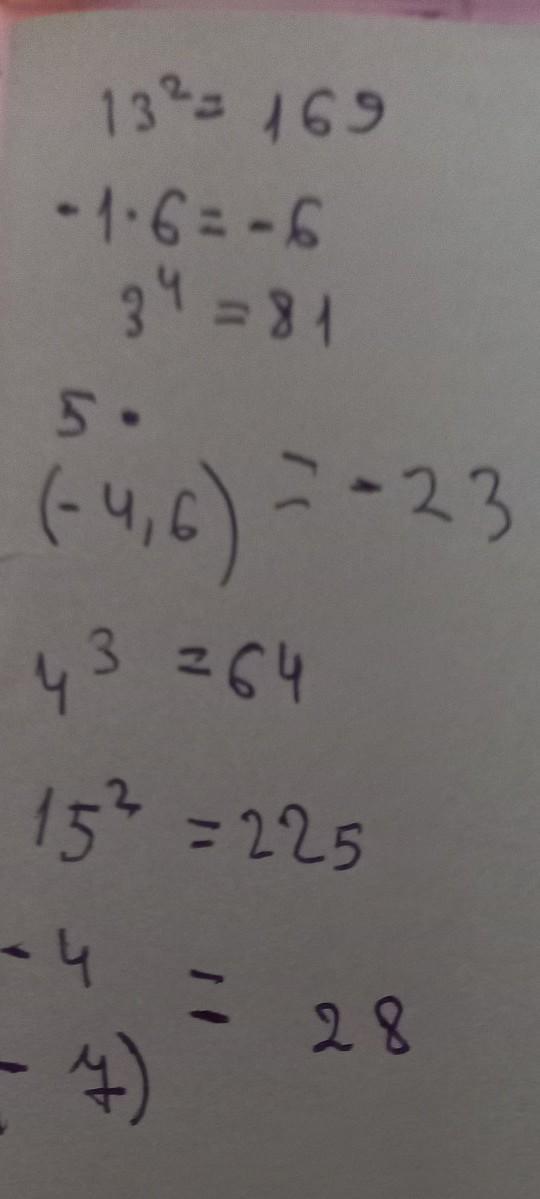 13² = 169
-1·6 = -6
3⁴ = 81
5 ·
(-4,6) = -23
4³ = 64
15² = 225
- 4
= 28
- 7)